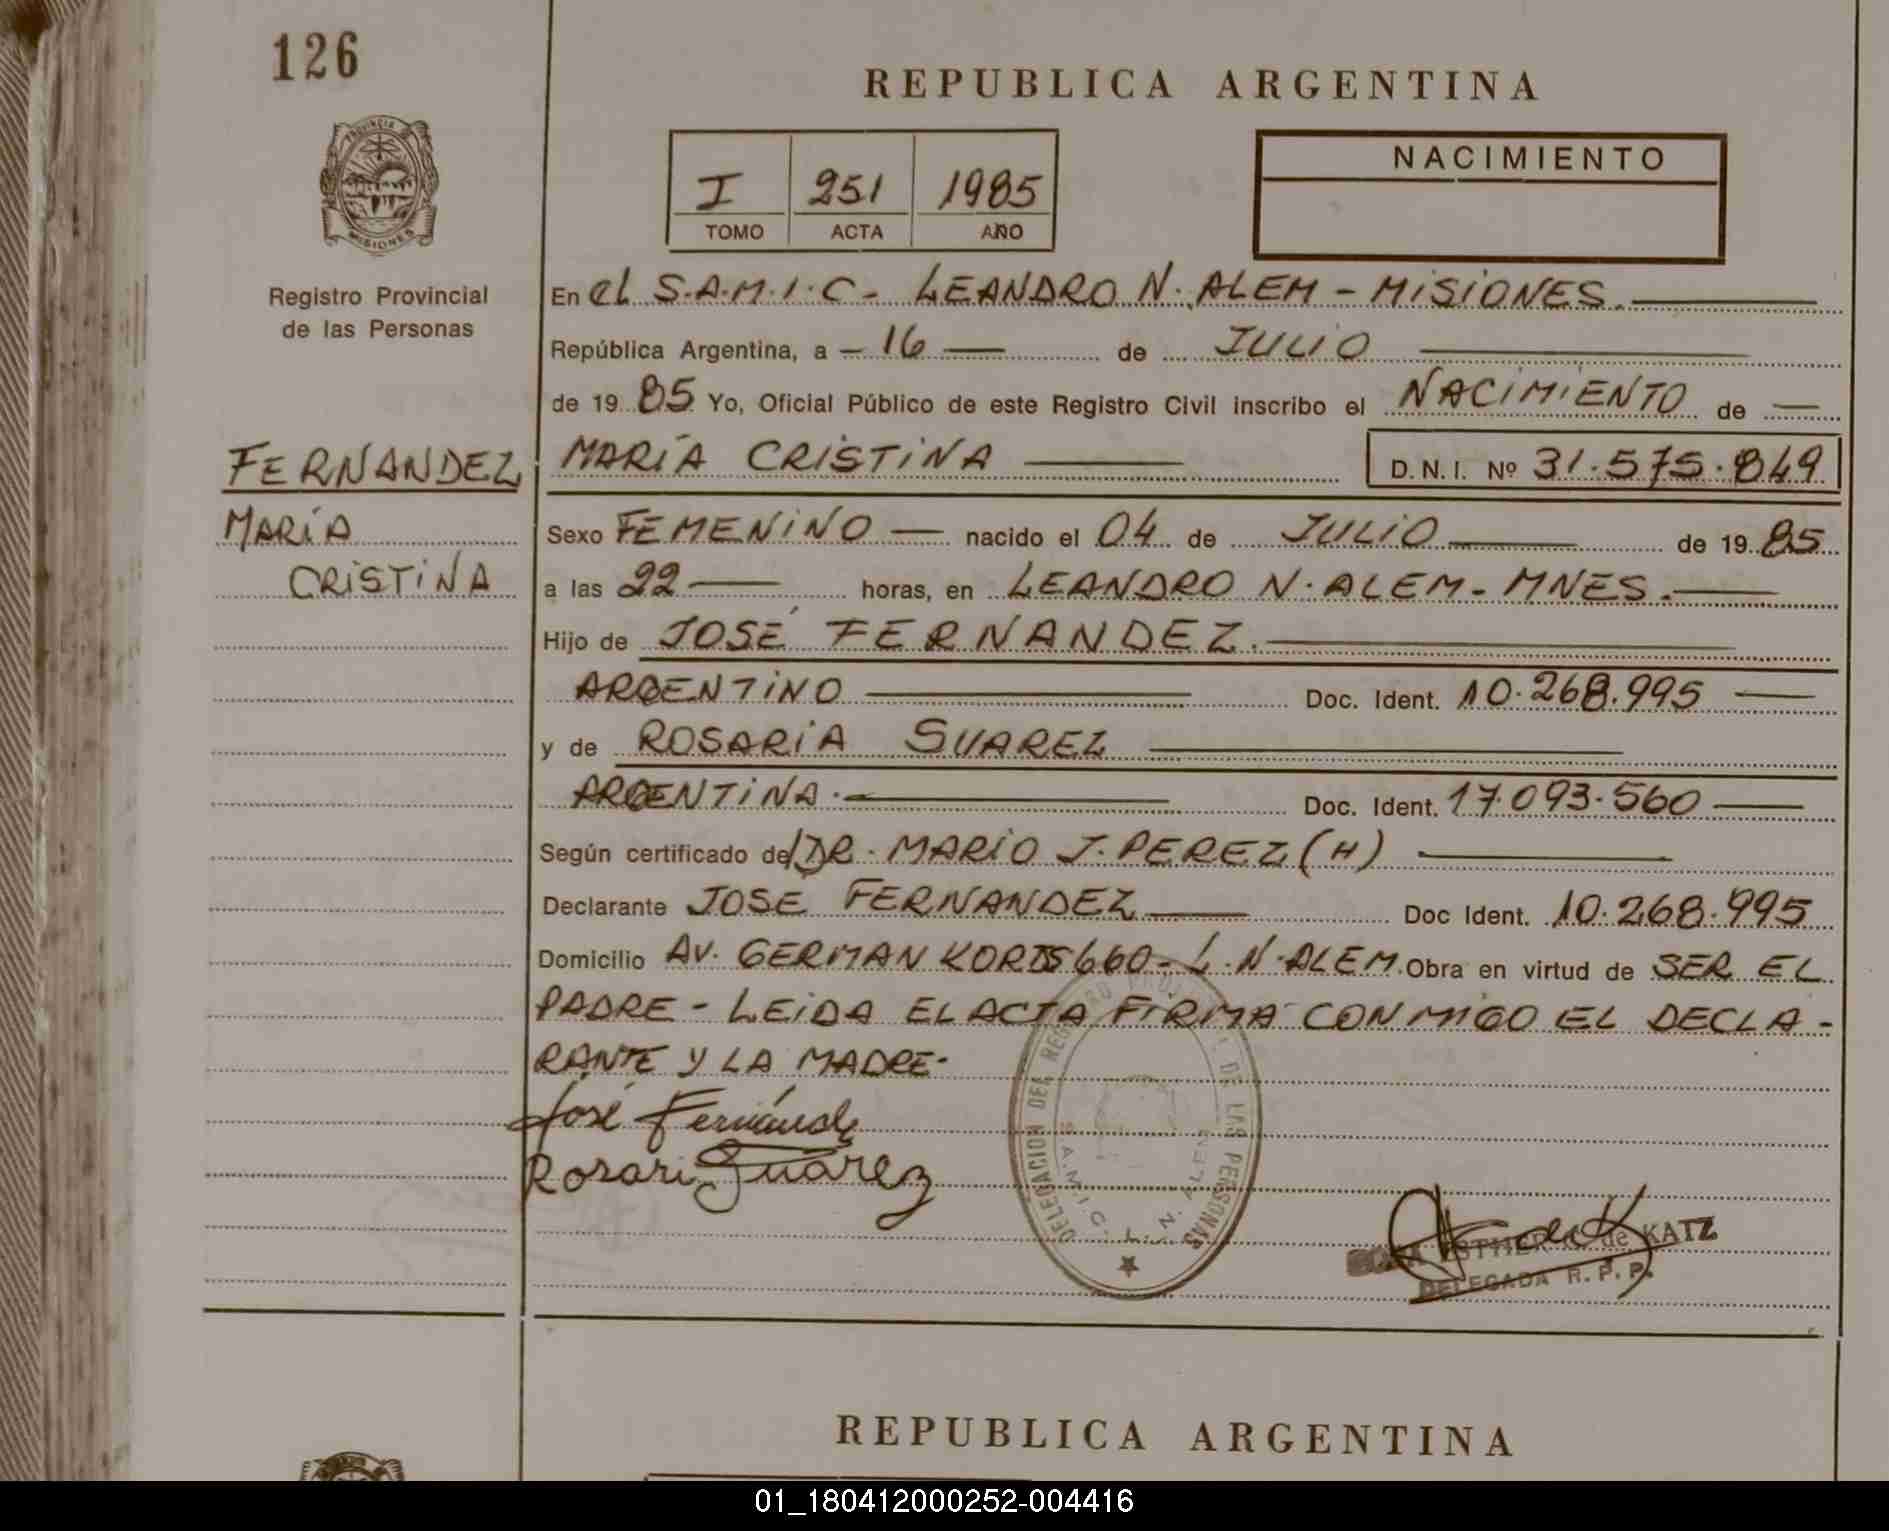 126
REPUBLICA ARGENTINA
PROVINCIA DE
MISIONES
Registro Provincial
de las Personas
I 251 1985
TOMO ACTA AÑO
NACIMIENTO
En el S.A.M.I.C- LEANDRO N. ALEM - MISIONES.
República Argentina, a - 16 — de JULIO
de 19 85 Yo, Oficial Público de este Registro Civil inscribo el NACIMIENTO de —
FERNANDEZ
MARÍA
CRISTINA
MARÍA CRISTINA — D.N.I. Nº 31.575.849
Sexo FEMENINO — nacido el 04 de JULIO — de 19 85
a las 22 — horas, en LEANDRO N. ALEM - MNES.
Hijo de JOSÉ FERNANDEZ.
ARGENTINO — Doc. Ident. 10.268.995 —
y de ROSARIA SUAREZ
ARGENTINA. — Doc. Ident. 17.093.560 —
Según certificado de DR. MARIO J. PEREZ (H)
Declarante JOSE FERNANDEZ — Doc Ident. 10.268.995
Domicilio AV. GERMAN 660 - L.N.ALEM. Obra en virtud de SER EL
PADRE - LEIDA EL ACTA FIRMA CONMIGO EL DECLA-
RANTE Y LA MADRE-
José Fernández
Rosari Suárez
DELEGACION DEL REGISTRO PROVINCIAL DE LAS PERSONAS
S.A.M.I.C. L. N. ALEM
ESTHER de KATZ
DELEGADA R. P. P.
REPUBLICA ARGENTINA
01_180412000252-004416